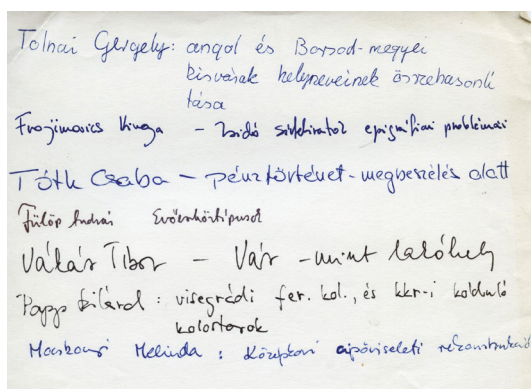 Tolnai Gergely: angol és Borsod-megyei
kisvárak helyneveinek összehasonlí
tása
Frojimovics Kinga – Zsidó sírfeliratok epigráfiai problémái
Tóth Csaba – pénztörténet - megbeszélés alatt
Fülöp András
Vákár Tibor – Vár – mint lakóhely
Papp Szilárd: visegrádi fer. kol., és kkr-i kolduló
kolostorok
Melinda: Középkori cipőviseleti rekonstrukció